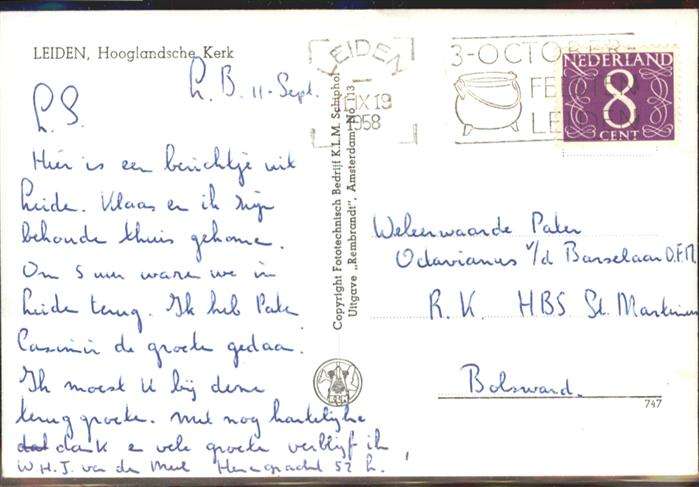 LEIDEN, Hooglandsche Kerk
L. B. 11-Sept.
L. S.
Hier is een berichtje uit
Leide. Klaas en ik zijn
behoude thuis gekome.
Om 5 uur ware we in
Leide terug. Ik heb Pater
Casimir de groete gedaa.
Ik moest U bij deze
terug groete. Met nog hartelijke
dank en vele groete verblijf ik
W H. J. van der Heerengracht 52 L.
Copyright Fototechnisch Bedrijf K.L.M. Schiphol
Uitgave „Rembrandt”, Amsterdam-No 113
LEIDEN
IX 19
1958
3-OCTOBER-
LEIDEN
NEDERLAND
8
CENT
Weleerwaarde Pater
Octavianus v/d Barselaar O.F.M
R. K. HBS St. Martinus
Bolsward.
747